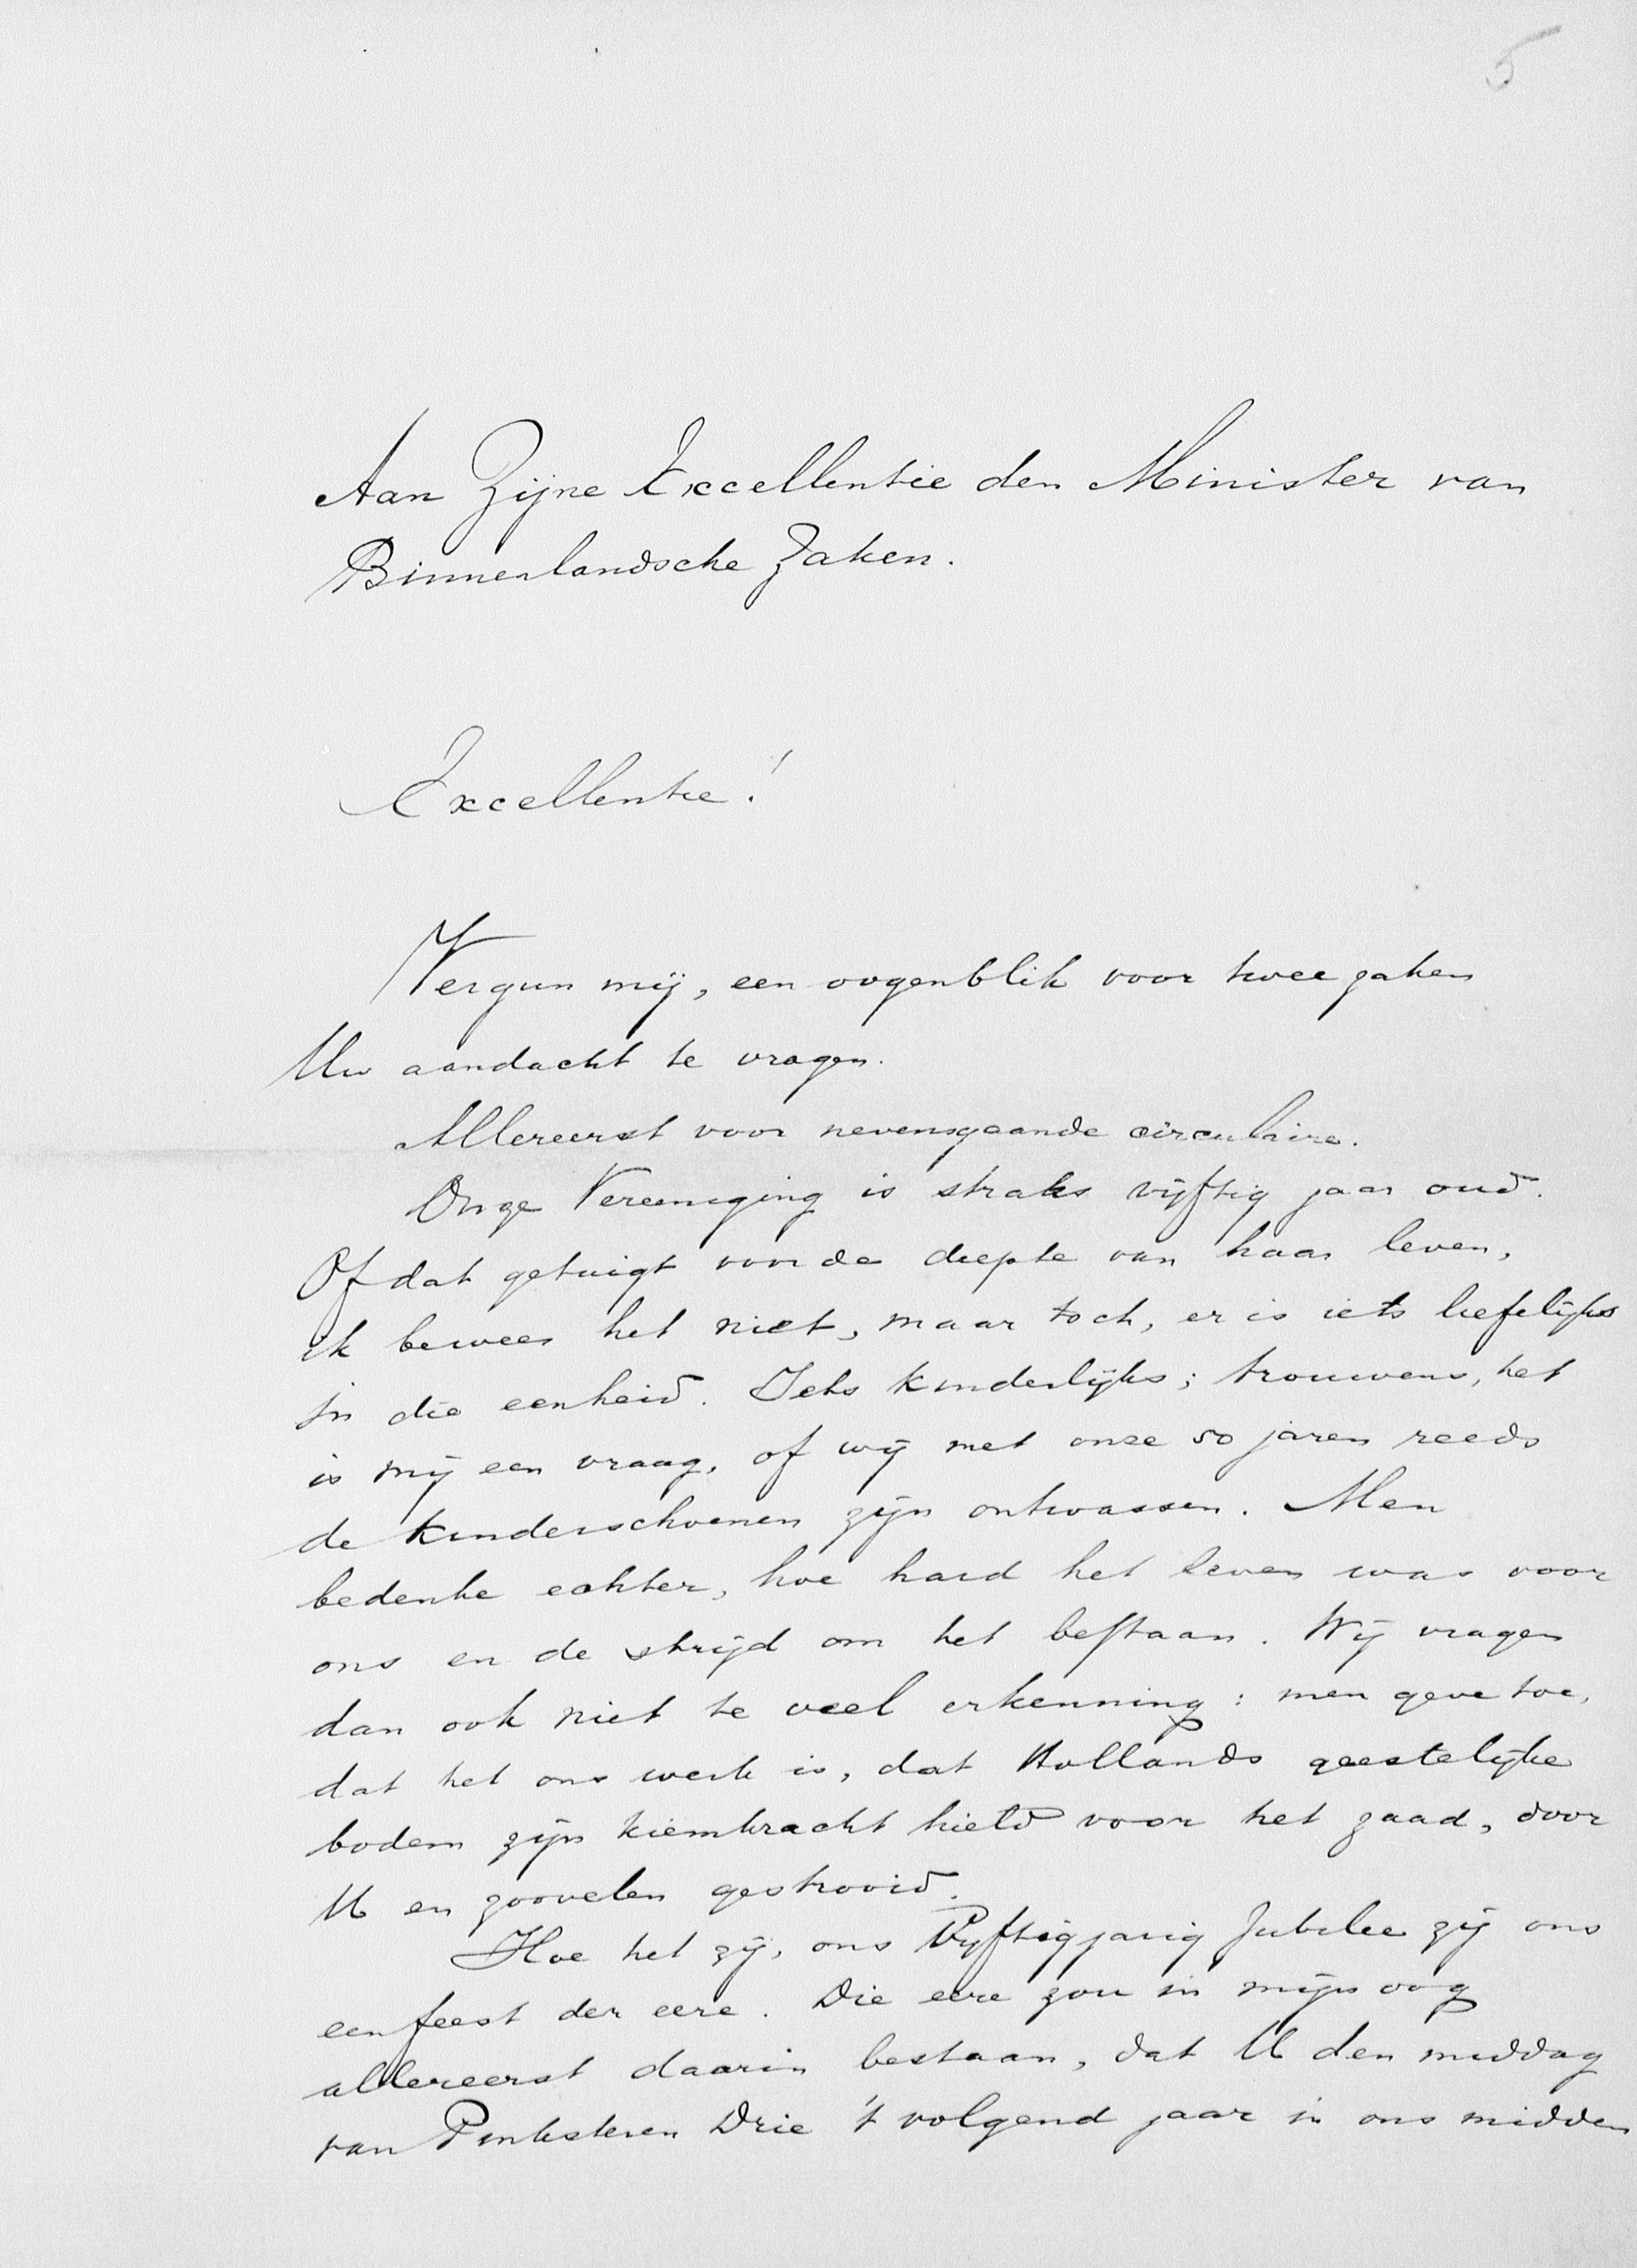 5
Aan Zijne Excellentie den Minister van
Binnenlandsche Zaken.
Excellentie!
Vergun mij, een oogenblik voor twee zaken
Uw aandacht te vragen.
Allereerst voor nevensgaande circulaire.
Onze Vereeniging is straks vijftig jaar oud.
Of dat getuigt voor de diepte van haar leven,
ik bewees het niet, maar toch, er is iets liefelijks
in die eenheid. Iets kinderlijks; trouwens, het
is mij een vraag, of wij met onze 50 jaren reeds
de kinderschoenen zijn ontwassen. Men
bedenke echter, hoe hard het leven was voor
ons en de strijd om het bestaan. Wij vragen
dan ook niet te veel erkenning: men geve toe,
dat het ons werk is, dat Hollands geestelijke
bodem zijn kiemkracht hield voor het zaad, door
U en zoovelen gestrooid.
Hoe het zij, ons Vijftigjarig Jubilee zij ons
een feest der eere. Die eere zou in mijn oog
allereerst daarin bestaan, dat U den middag
van Pinksteren Drie 't volgend jaar in ons midden